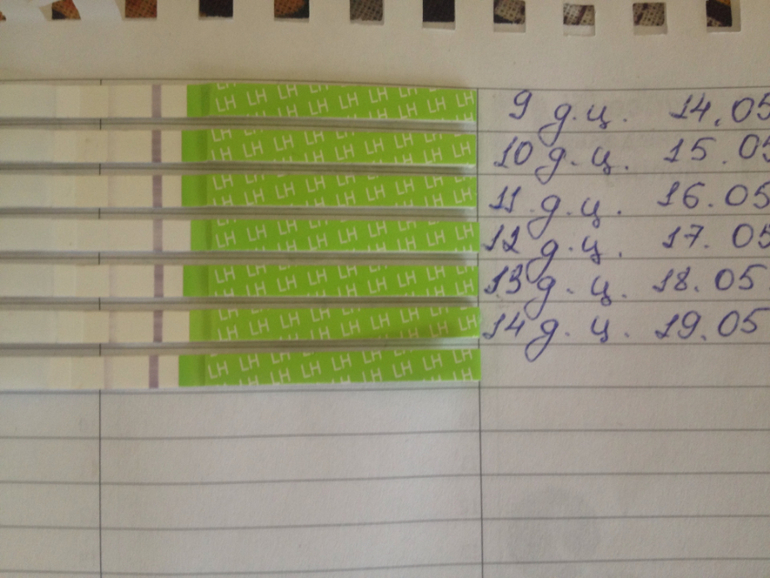 LH LH LH LH LH LH LH LH LH
9 д.ц. 14.05
10 д.ц. 15.05
11 д.ц. 16.05
12 д.ц. 17.05
13 д.ц. 18.05
14 д.ц. 19.05